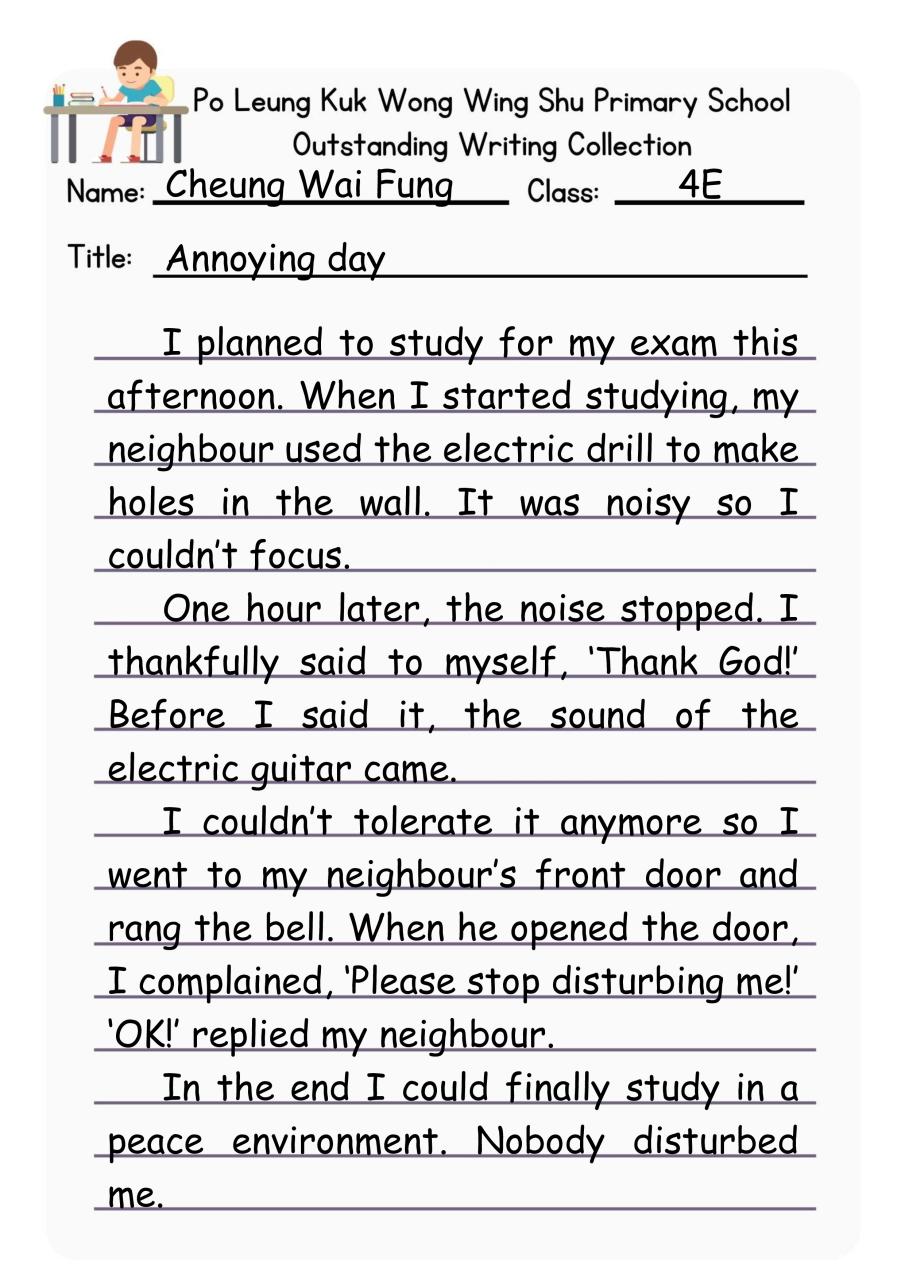 Po Leung Kuk Wong Wing Shu Primary School
Outstanding Writing Collection
Name: Cheung Wai Fung Class: 4E
Title: Annoying day
I planned to study for my exam this
afternoon. When I started studying, my
neighbour used the electric drill to make
holes in the wall. It was noisy so I
couldn't focus.
One hour later, the noise stopped. I
thankfully said to myself, ‘Thank God!’
Before I said it, the sound of the
electric guitar came.
I couldn't tolerate it anymore so I
went to my neighbour's front door and
rang the bell. When he opened the door,
I complained, ‘Please stop disturbing me!’
‘OK!’ replied my neighbour.
In the end I could finally study in a
peace environment. Nobody disturbed
me.